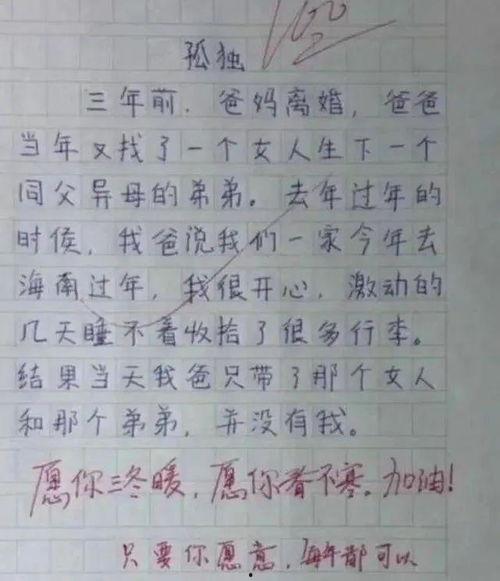 100
孤独
三年前，爸妈离婚，爸爸
当年又找了一个女人生下一个
同父异母的弟弟。去年过年的
时侯，我爸说我们一家今年去
海南过年，我很开心，激动的
几天睡不着收拾了很多行李。
结果当天我爸只带了那个女人
和那个弟弟，并没有我。
愿你三冬暖，愿你春不寒。加油！
只要你愿意，每年都可以